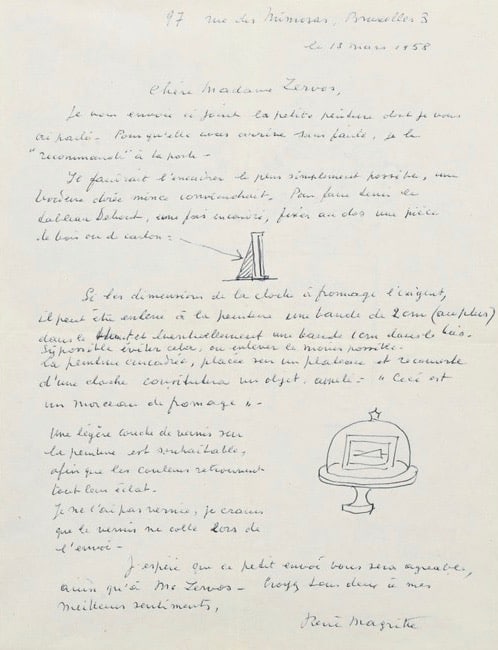 97 rue des Mimosas, Bruxelles 3
le 13 mars 1958
Chère Madame Zervos,
Je vous envoie ci joint la petite peinture dont je vous
ai parlé. Pour qu'elle vous arrive sans faute, je la
"recommandé" à la poste -
Il faudrait l'encadrer le plus simplement possible, une
bordure dorée mince conviendrait. Pour faire tenir le
tableau debout, une fois encadré, fixer au dos une pièce
de bois ou de carton :
Si les dimensions de la cloche à fromage l'exigent,
il peut être enlevé à la peinture une bande de 2 cm (au plus)
dans le haut et éventuellement une bande 1 cm dans le bas.
Si possible éviter cela, ou enlever le moins possible.
la peinture encadrée, placée sur un plateau et recouverte
d'une cloche constituera un objet - "Ceci est
un morceau de fromage" -
Une légère couche de vernis sur
la peinture est souhaitable,
afin que les couleurs retrouvent
tout leur éclat.
Je ne l'ai pas vernie, je crains
que le vernis ne colle lors de
l'envoi -
J'espère que ce petit envoi vous sera agréable,
ainsi qu'à Mr Zervos - Croyez tous deux à mes
meilleurs sentiments,
René Magritte